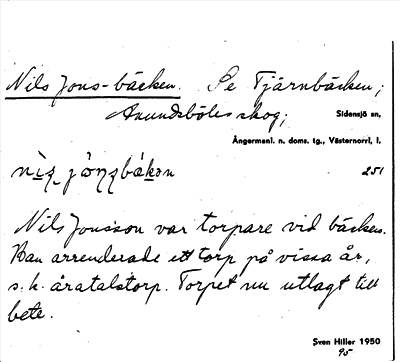 Nils Jons-bäcken. Se Tjärnbäcken;
Anundsböles skog; Sidensjö sn,
Ångermanl. n. doms. tg., Västernorrl. l.
251
Nils Jonsson var torpare vid bäcken.
Han arrenderade ett torp på vissa år,
s. k. åratalstorp. Torpet nu utlagt till
bete.
Sven Hiller 1950
95